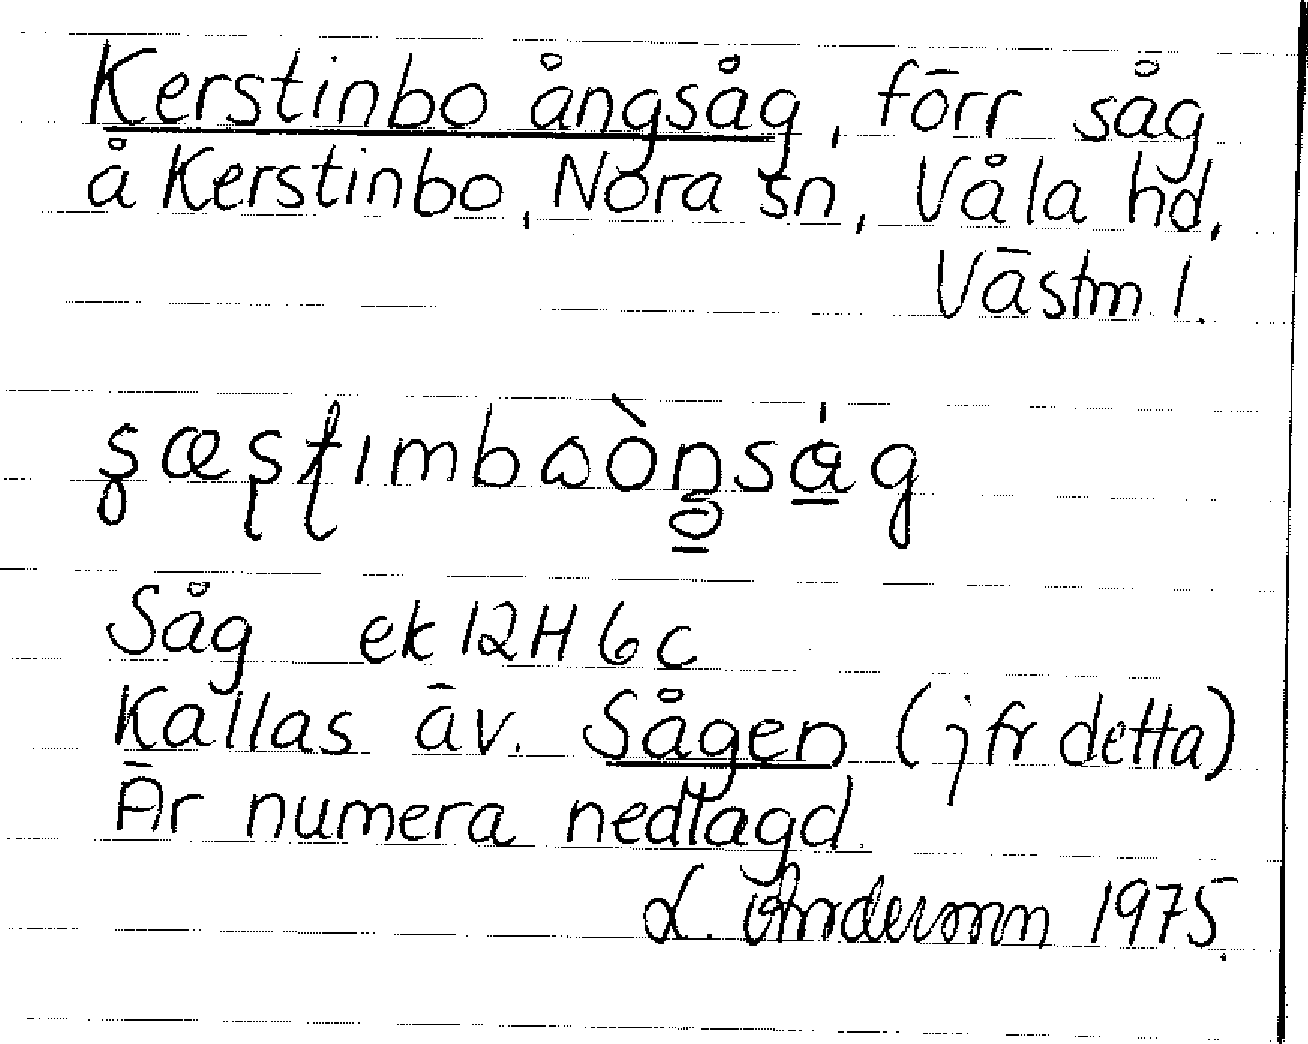 Kerstinbo ångsåg, förr såg
å Kerstinbo, Nora sn, Våla hd,
Västm l.
Såg ek 12H 6c
Kallas äv. Sågen (jfr detta)
Är numera nedlagd.
L. 1975